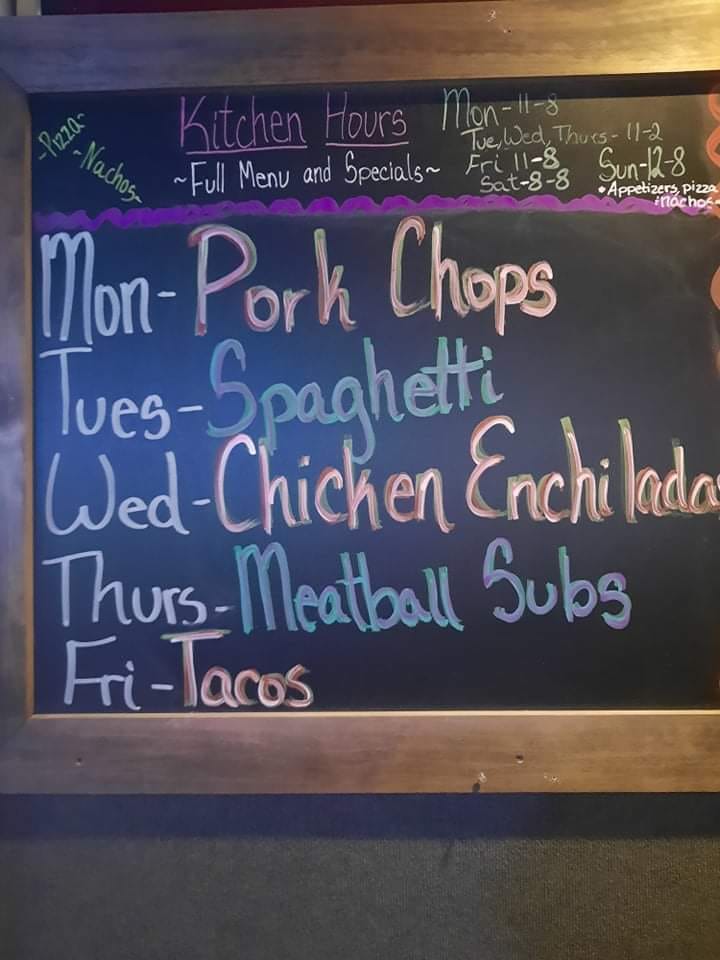 -Pizza-
-Nachos-
Kitchen Hours
~Full Menu and Specials~
Mon-11-8
Tue, Wed, Thurs-11-2
Fri 11-8
Sat-8-8
Sun-12-8
•Appetizers, pizza
nachos-
Mon-Pork Chops
Tues-Spaghetti
Wed-Chicken Enchiladas
Thurs-Meatball Subs
Fri-Tacos